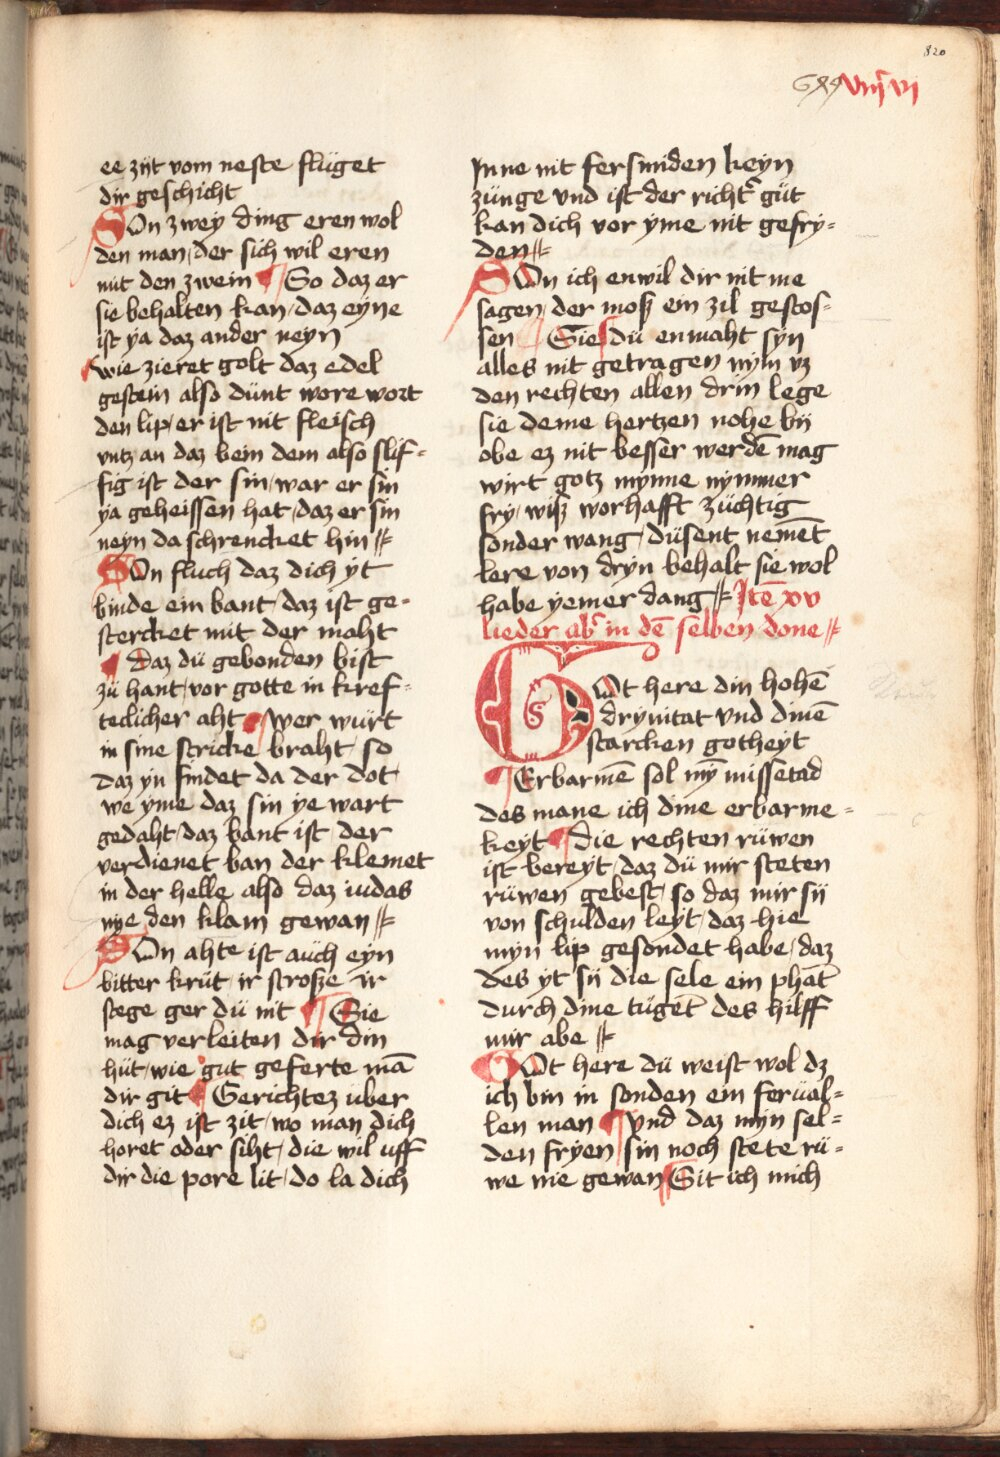 820
ee zijt vom neste flüget
dir geschicht
Son zwey ding eren wol
den man, der sich wil eren
mit den zwein So daz er
sie behalten kan, daz eyne
ist ya daz ander neyn
wie zieret golt daz edel
gestein also dünt wore wort
den lip, er ist nit fleisch
vntz an daz bein dem also slif-
fig ist der sin, war er sin
ya geheissen hat, daz er sin
neyn da schrencket hin
Son fluch daz dich yt
binde ein bant, daz ist ge-
stercket mit der maht
daz dü gebonden bist
zü hant, vor gotte in kref-
teclicher aht wer würt
in sine stricke braht, so
daz yn findet da der dot
we yme daz sin ye wart
gedaht, daz bant ist der
verdienet ban der klemet
in der helle also daz iudas
nye den klam gewan
Son ahte ist aüch eyn
bitter krüt, ir strosze ir
stege ger dü nit Sie
mag verleiten dir din
hüt, wie gut geferte mā
dir git Gerichtez uber
dich ez ist zit, wo man dich
horet oder siht, die wil uff
dir die pore lit, do la dich
Inne nit fersniden keyn
zünge vnd ist der richt' güt
kan dich vor yme nit gefry-
den
Son ich enwil dir nit me
sagen, der mosz ein zil gestos-
sen Sie dü enmaht syn
alles nit getragen nym vz
den rechten allen drin lege
sie deme hertzen nohe bij
obe ez nit besser werdē mag
wirt gotz mynne nymmer
fry, wisz worhafft züchtig
sonder wang, düsent nemēt
lere von dryn behalt sie wol
habe yemer dang Itē xv
lieder ab' in dē selben done
Got here din hohē
drynitat vnd dinē
starcken gotheyt
Erbarmē sol mȳ missetad
des mane ich dine erbarme-
keyt die rechten rüwen
ist bereyt, daz dü mir steten
rüwen gebest, so daz mir sij
von schulden leyt, daz hie
myn lip gesondet habe, daz
des yt sij die sele ein phāt
durch dine tügēt des hilff
mir abe
Got here dü weist wol dz
ich bin in sonden ein ferüal-
len man vnd daz myn sel-
den fryen sin noch stete rü-
we nie gewan Sit ich mich